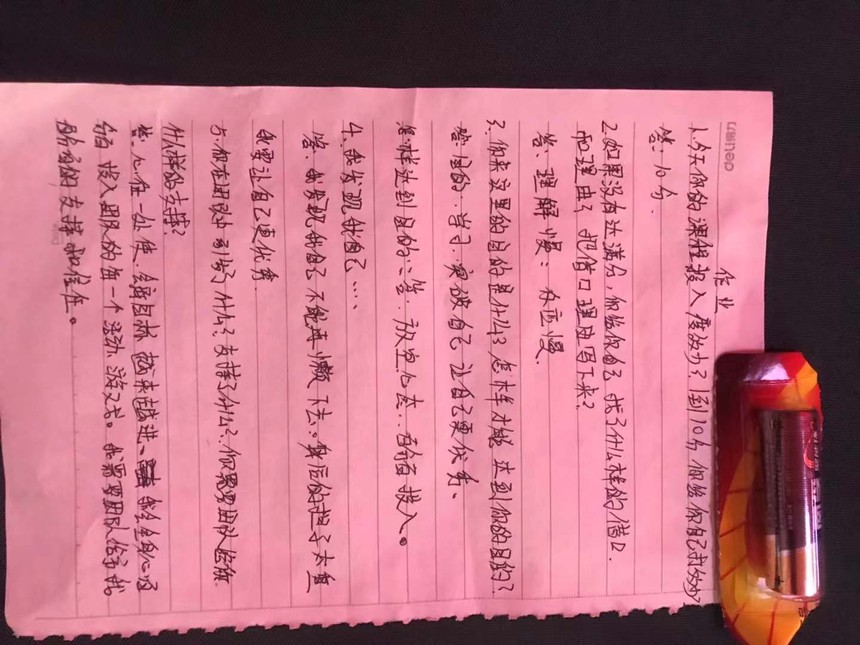 deli
作业
1.今天你的课程投入度多少？1到10分你给你自己打多少？
答：10分.
2.如果没有达满分，你给你自己找了什么样的借口.
和理由？把借口理由写下来？
答：理解慢：
3.你来这里的目的是什么？怎样才能达到你的目的？
答:目的：学习.突破自己.让自己更优秀.
怎样达到目的：答.放空心态..百分百投入。
4.我发现我自己...
答.我发现我自己不能再懒下去.身后的担子太重
我要让自己更优秀.
5.你在团队中引发了什么？支持了什么？你需要团队给你
什么样的支持？
答.心在一处使.离目标越来越近、我会全身心百
分百投入团队的每一个活动.游戏。我需要团队给予我
百分百的支持和信任。